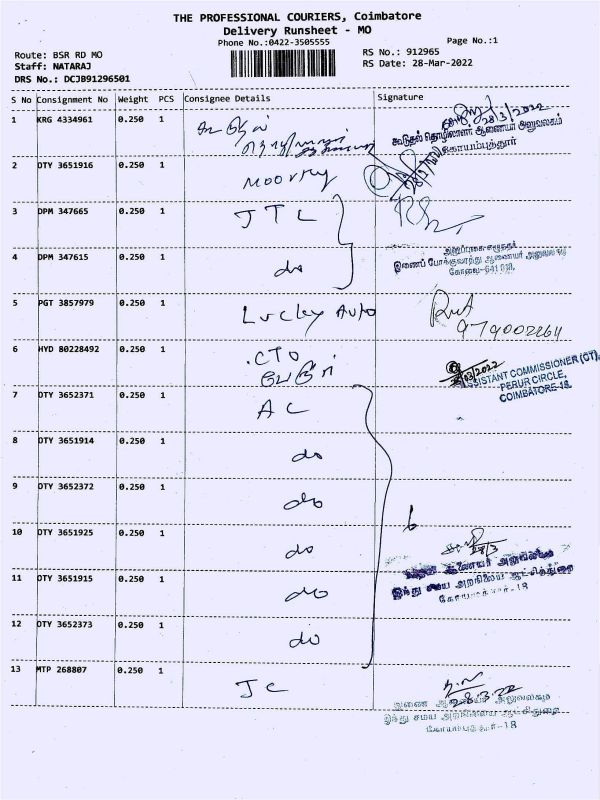 THE PROFESSIONAL COURIERS, Coimbatore
Delivery Runsheet - MO
Phone No.:0422-3505555 Page No.:1
Route: BSR RD MO RS No.: 912965
Staff: NATARAJ RS Date: 28-Mar-2022
DRS No.: DCJB91296501
S No Consignment No Weight PCS Consignee Details Signature
1 KRG 4334961 0.250 1
28/3/2022
கூடுதல் தொழிலாளர் ஆணையர் அலுவலகம்
கோயம்புத்தூர்
2 DTY 3651916 0.250 1 Moorthy
3 DPM 347665 0.250 1 JTL
4 DPM 347615 0.250 1 do
இணைப் போக்குவரத்து ஆணையர்
கோவை-641 018.
5 PGT 3857979 0.250 1 Lucky Auto
6 HYD 80228492 0.250 1 CTO
ASSISTANT COMMISSIONER (CT),
PERUR CIRCLE,
COIMBATORE-18.
7 DTY 3652371 0.250 1 AC
8 DTY 3651914 0.250 1 do
9 DTY 3652372 0.250 1 do
10 DTY 3651925 0.250 1 do
28/3
11 DTY 3651915 0.250 1 do
இந்து சமய அறநிலைய ஆட்சித்துறை
கோயமுத்தூர்-18
12 DTY 3652373 0.250 1 do
13 MTP 268807 0.250 1 JC
28.3.22
இணை ஆணையர் அலுவலகம்
இந்து சமய அறநிலைய ஆட்சித்துறை
கோயம்புத்தூர்-18